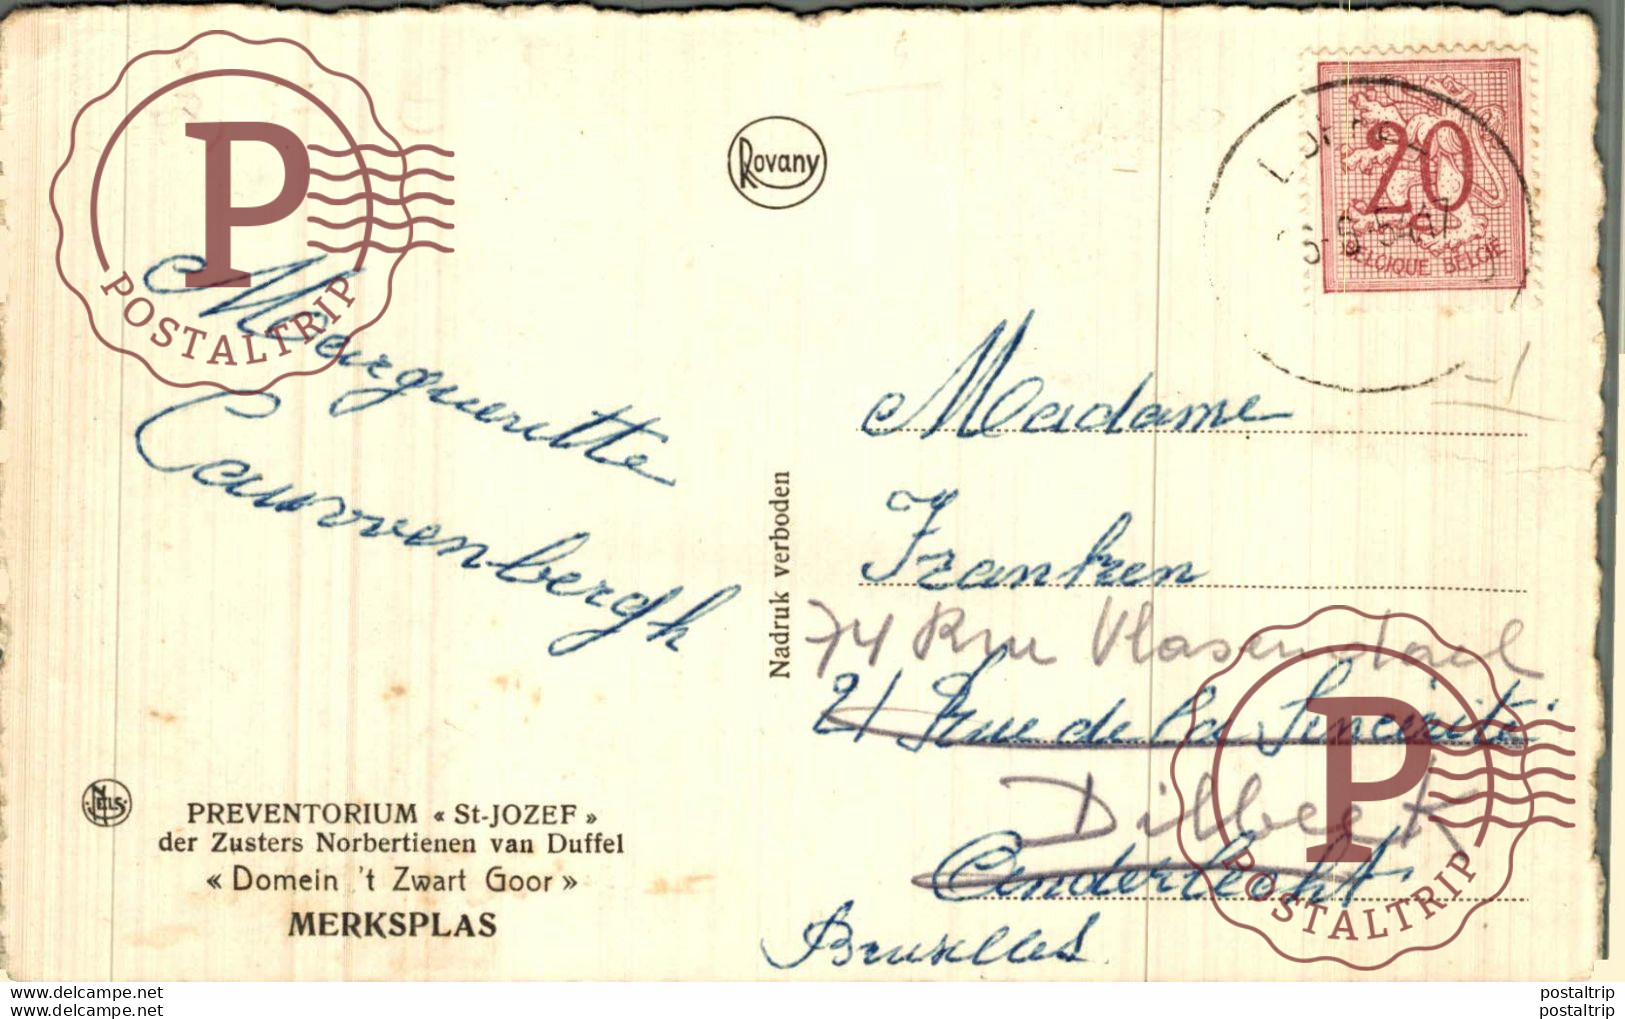 Rovany
20
BELGIQUE BELGIË
Margueritte
Cauwenbergh
Nadruk verboden
Madame
Franken
74 Rue Vlasendael
21 Rue de la Sincérité
Dilbeek
Anderlecht
Bruxelles
NELS
PREVENTORIUM « St-JOZEF »
der Zusters Norbertienen van Duffel
« Domein 't Zwart Goor »
MERKSPLAS
P
POSTALTRIP
P
POSTALTRIP
www.delcampe.net postaltrip
www.delcampe.net postaltrip